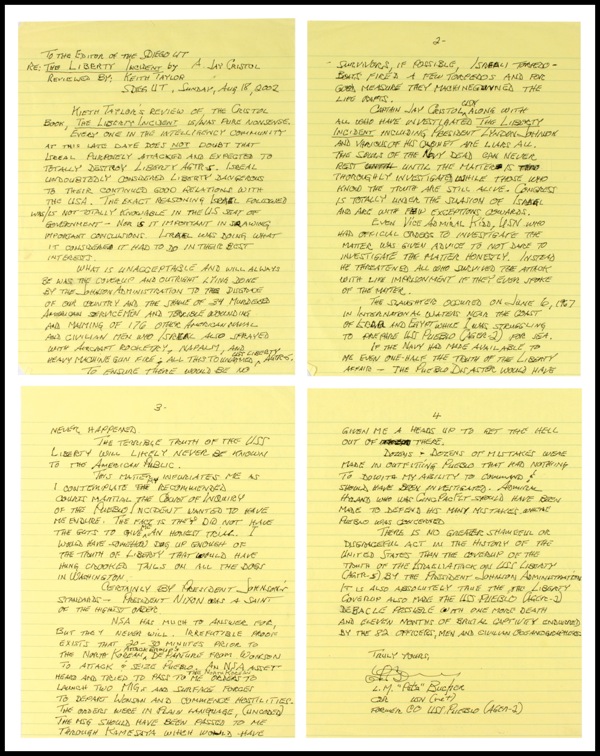 To the Editor of the SDIEGO UT
RE: The LIBERTY INCIDENT by A. JAY CRISTOL
REVIEWED BY: KEITH TAYLOR
SDIEG UT, SUNDAY, AUG 18, 2002
KIETH TAYLOR'S REVIEW OF, THE CRISTOL
BOOK, THE LIBERTY INCIDENT IS/WAS PURE NONSENSE.
EVERY ONE IN THE INTELLIGENCY COMMUNITY
AT THIS LATE DATE DOES NOT DOUBT THAT
ISREAL PURPOSELY ATTACKED AND EXPECTED TO
TOTALLY DESTROY LIBERTY AGTR-5. ISREAL
UNDOUBTEDLY CONSIDERED LIBERTY DANGEROUS
TO THEIR CONTINUED GOOD RELATIONS WITH
THE USA. THE EXACT REASONING ISRAEL FOLLOWED
WAS/IS NOT TOTALLY KNOWABLE IN THE US SEAT OF
GOVERNMENT - NOR IS IT IMPORTANT IN DRAWING
IMPORTANT CONCLUSIONS. ISRAEL WAS DOING WHAT
IT CONSIDERED IT HAD TO DO IN THEIR BEST
INTERESTS.
WHAT IS UNACCEPTABLE AND WILL ALWAYS
BE WAS THE COVERUP AND OUTRIGHT LYING DONE
BY THE JOHNSON ADMINISTRATION TO THE DISGRACE
OF OUR COUNTRY AND THE SHAME OF 34 MURDERED
AMERICAN SERVICEMEN AND TERRIBLE WOUNDING
AND MAIMING OF 176 OTHER AMERICAN NAVAL
AND CIVILIAN MEN WHO ISREAL ALSO SPRAYED
WITH AIRCRAFT ROCKETRY, NAPALM, AND
HEAVY MACHINE GUN FIRE, ALL THIS TO UNARMED USS LIBERTY AGTR-5.
TO ENSURE THERE WOULD BE NO
2-
SURVIVORS, IF POSSIBLE, ISRAELI TORPEDO-
BOATS FIRED A FEW TORPEDOS AND FOR
GOOD MEASURE THEY MACHINEGUNNED THE
LIFE RAFTS.
CAPTAIN JAY CRISTOL, USN ALONG WITH
ALL WHO HAVE INVESTIGATED THE LIBERTY
INCIDENT INCLUDING PRESIDENT LYNDON JOHNSON
AND VARIOUS OF HIS CABINET ARE LIARS ALL.
THE SOULS OF THE NAVY DEAD CAN NEVER
REST UNTIL THE MATTER IS
THOROUGHLY INVESTIGATED WHILE THOSE WHO
KNOW THE TRUTH ARE STILL ALIVE. CONGRESS
IS TOTALLY UNDER THE SUASION OF ISREAL
AND ARE WITH FEW EXCEPTIONS COWARDS.
EVEN VICE ADMIRAL KIDD, USN WHO
HAD OFFICIAL ORDERS TO INVESTIGATE THE
MATTER WAS GIVEN ADVICE TO NOT DARE TO
INVESTIGATE THE MATTER HONESTLY. INSTEAD
HE THREATENED ALL WHO SURVIVED THE ATTACK
WITH LIFE IMPRISONMENT IF THEY EVER SPOKE
OF THE MATTER.
THE SLAUGHTER OCCURED ON JUNE 6, 1967
IN INTERNATIONAL WATERS NEAR THE COAST
OF AND EGYPT WHILE I WAS STRUGGLING
TO PREPARE USS PUEBLO (AGER-2) FOR SEA.
IF THE NAVY HAD MADE AVAILABLE TO
ME EVEN ONE-HALF THE TRUTH OF THE LIBERTY
AFFAIR - THE PUEBLO DISASTER WOULD HAVE
3-
NEVER HAPPENED.
THE TERRIBLE TRUTH OF THE USS
LIBERTY WILL LIKELY NEVER BE KNOWN
TO THE AMERICAN PUBLIC.
THIS MATTER INFURIATES ME AS
I CONTEMPLATE THE RECOMMENDED
COURTS MARTIAL THE COURT OF INQUIRY
OF THE PUEBLO INCIDENT WANTED TO HAVE
ME ENDURE. THE FACT IS THEY DID NOT HAVE
THE GUTS TO GIVE ME AN HONEST TRIAL. I
WOULD HAVE DUG UP ENOUGH OF
THE TRUTH OF LIBERTY THAT WOULD HAVE
HUNG CROOKED TAILS ON ALL THE DOGS
IN WASHINGTON.
CERTAINLY BY PRESIDENT JOHNSON'S
STANDARDS - PRESIDENT NIXON WAS A SAINT
OF THE HIGHEST ORDER.
NSA HAS MUCH TO ANSWER FOR,
BUT THEY NEVER WILL. IRREFUTIBLE PROOF
EXISTS THAT 20-30 MINUTES PRIOR TO
THE NORTH KOREAN DEPARTURE FROM WONSON
TO ATTACK & SEIZE PUEBLO, AN NSA ASSET
HEARD AND TRIED TO PASS TO ME THE NORTH KOREAN ORDERS TO
LAUNCH TWO MIGS AND SURFACE FORCES
TO DEPART WONSON AND COMMENCE HOSTILITIES.
THE ORDERS WERE IN PLAIN LANGUAGE, (UNCODED)
THE MSG SHOULD HAVE BEEN PASSED TO ME
THROUGH KAMESEYA WHICH WOULD HAVE
4
GIVEN ME A HEADS UP TO GET THE HELL
OUT OF THERE.
DOZENS & DOZENS OF MISTAKES WERE
MADE IN OUTFITTING PUEBLO THAT HAD NOTHING
TO DO WITH MY ABILITY TO COMMAND &
SHOULD HAVE BEEN INVESTIGATED. ADMIRAL
HYLAND WHO WAS CINCPACFLT SHOULD HAVE BEEN
MADE TO DEFEND HIS MANY MISTAKES WHERE
PUEBLO WAS CONCERNED.
THERE IS NO GREATER SHAMEFUL OR
DISGRACEFUL ACT IN THE HISTORY OF THE
UNITED STATES THAN THE COVERUP OF THE
TRUTH OF THE ISRAELI ATTACK ON USS LIBERTY
(AGTR-5) BY THE PRESIDENT JOHNSON ADMINISTRATION
IT IS ALSO ABSOLUTELY TRUE THE LIBERTY
COVERUP ALSO MADE THE USS PUEBLO (AGER-2)
DEBACLE POSSIBLE WITH ONE MORE DEATH
AND ELEVEN MONTHS OF BRUTAL CAPTIVITY ENDURED
BY THE 82 OFFICERS, MEN AND CIVILIAN OCEANOGRAPHERS.
TRULY YOURS,
L.M. "Pete" BUCHER
CDR USN (ret)
FORMER CO USS PUEBLO (AGER-2)